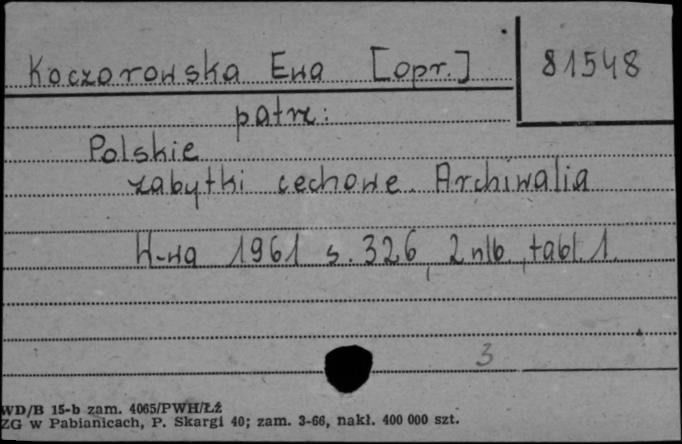 Koczorowska Ewa [opr.]
81548
patrz:
Polskie
zabytki cechowe. Archiwalia
W-wa 1961 s. 326, 2 nlb., tabl. 1.
3
WD/B 15-b zam. 4065/PWH/Łż
ZG w Pabianicach, P. Skargi 40; zam. 3-66, nakł. 400 000 szt.